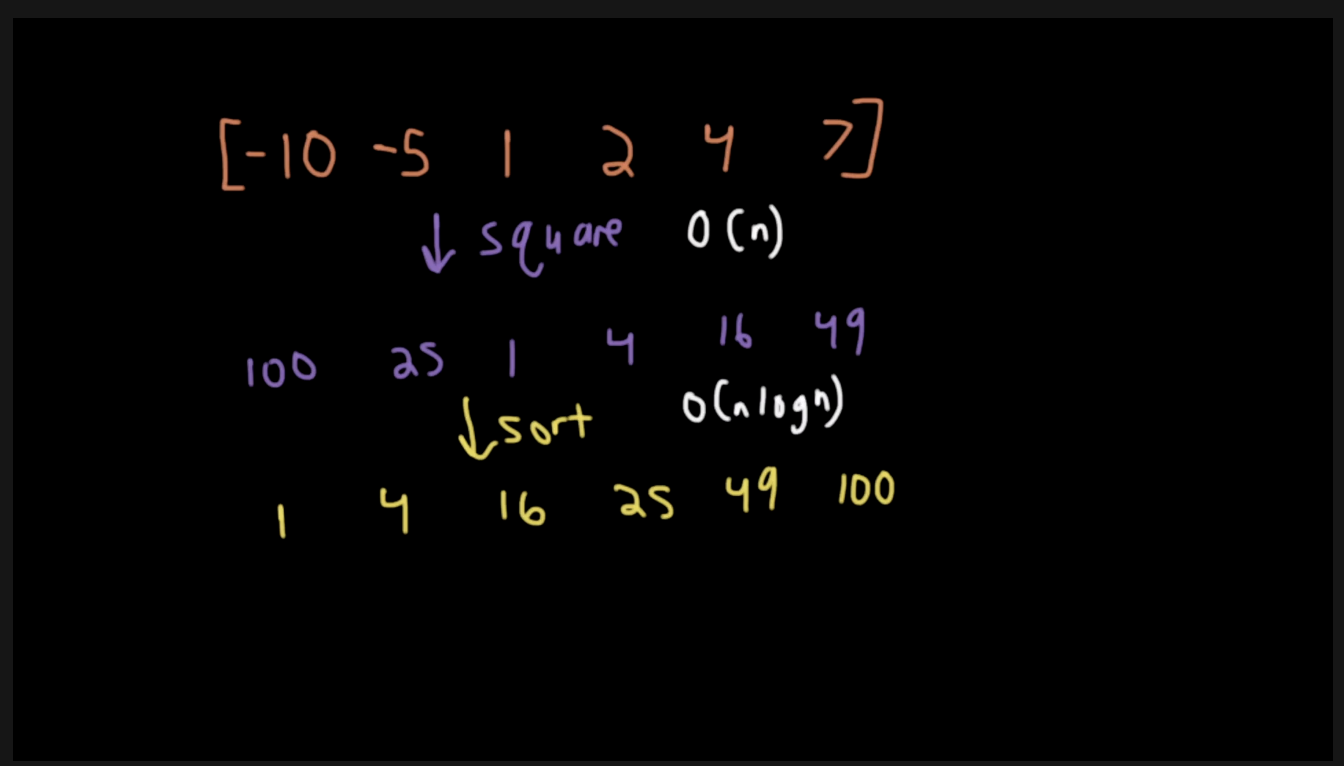 [-10 -5 1 2 4 7]
↓ square O(n)
100 25 1 4 16 49
↓ sort O(nlogn)
1 4 16 25 49 100